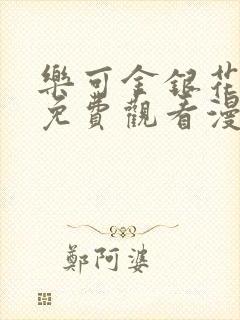 樂可金銀花
免費觀看漫
鄭阿婆